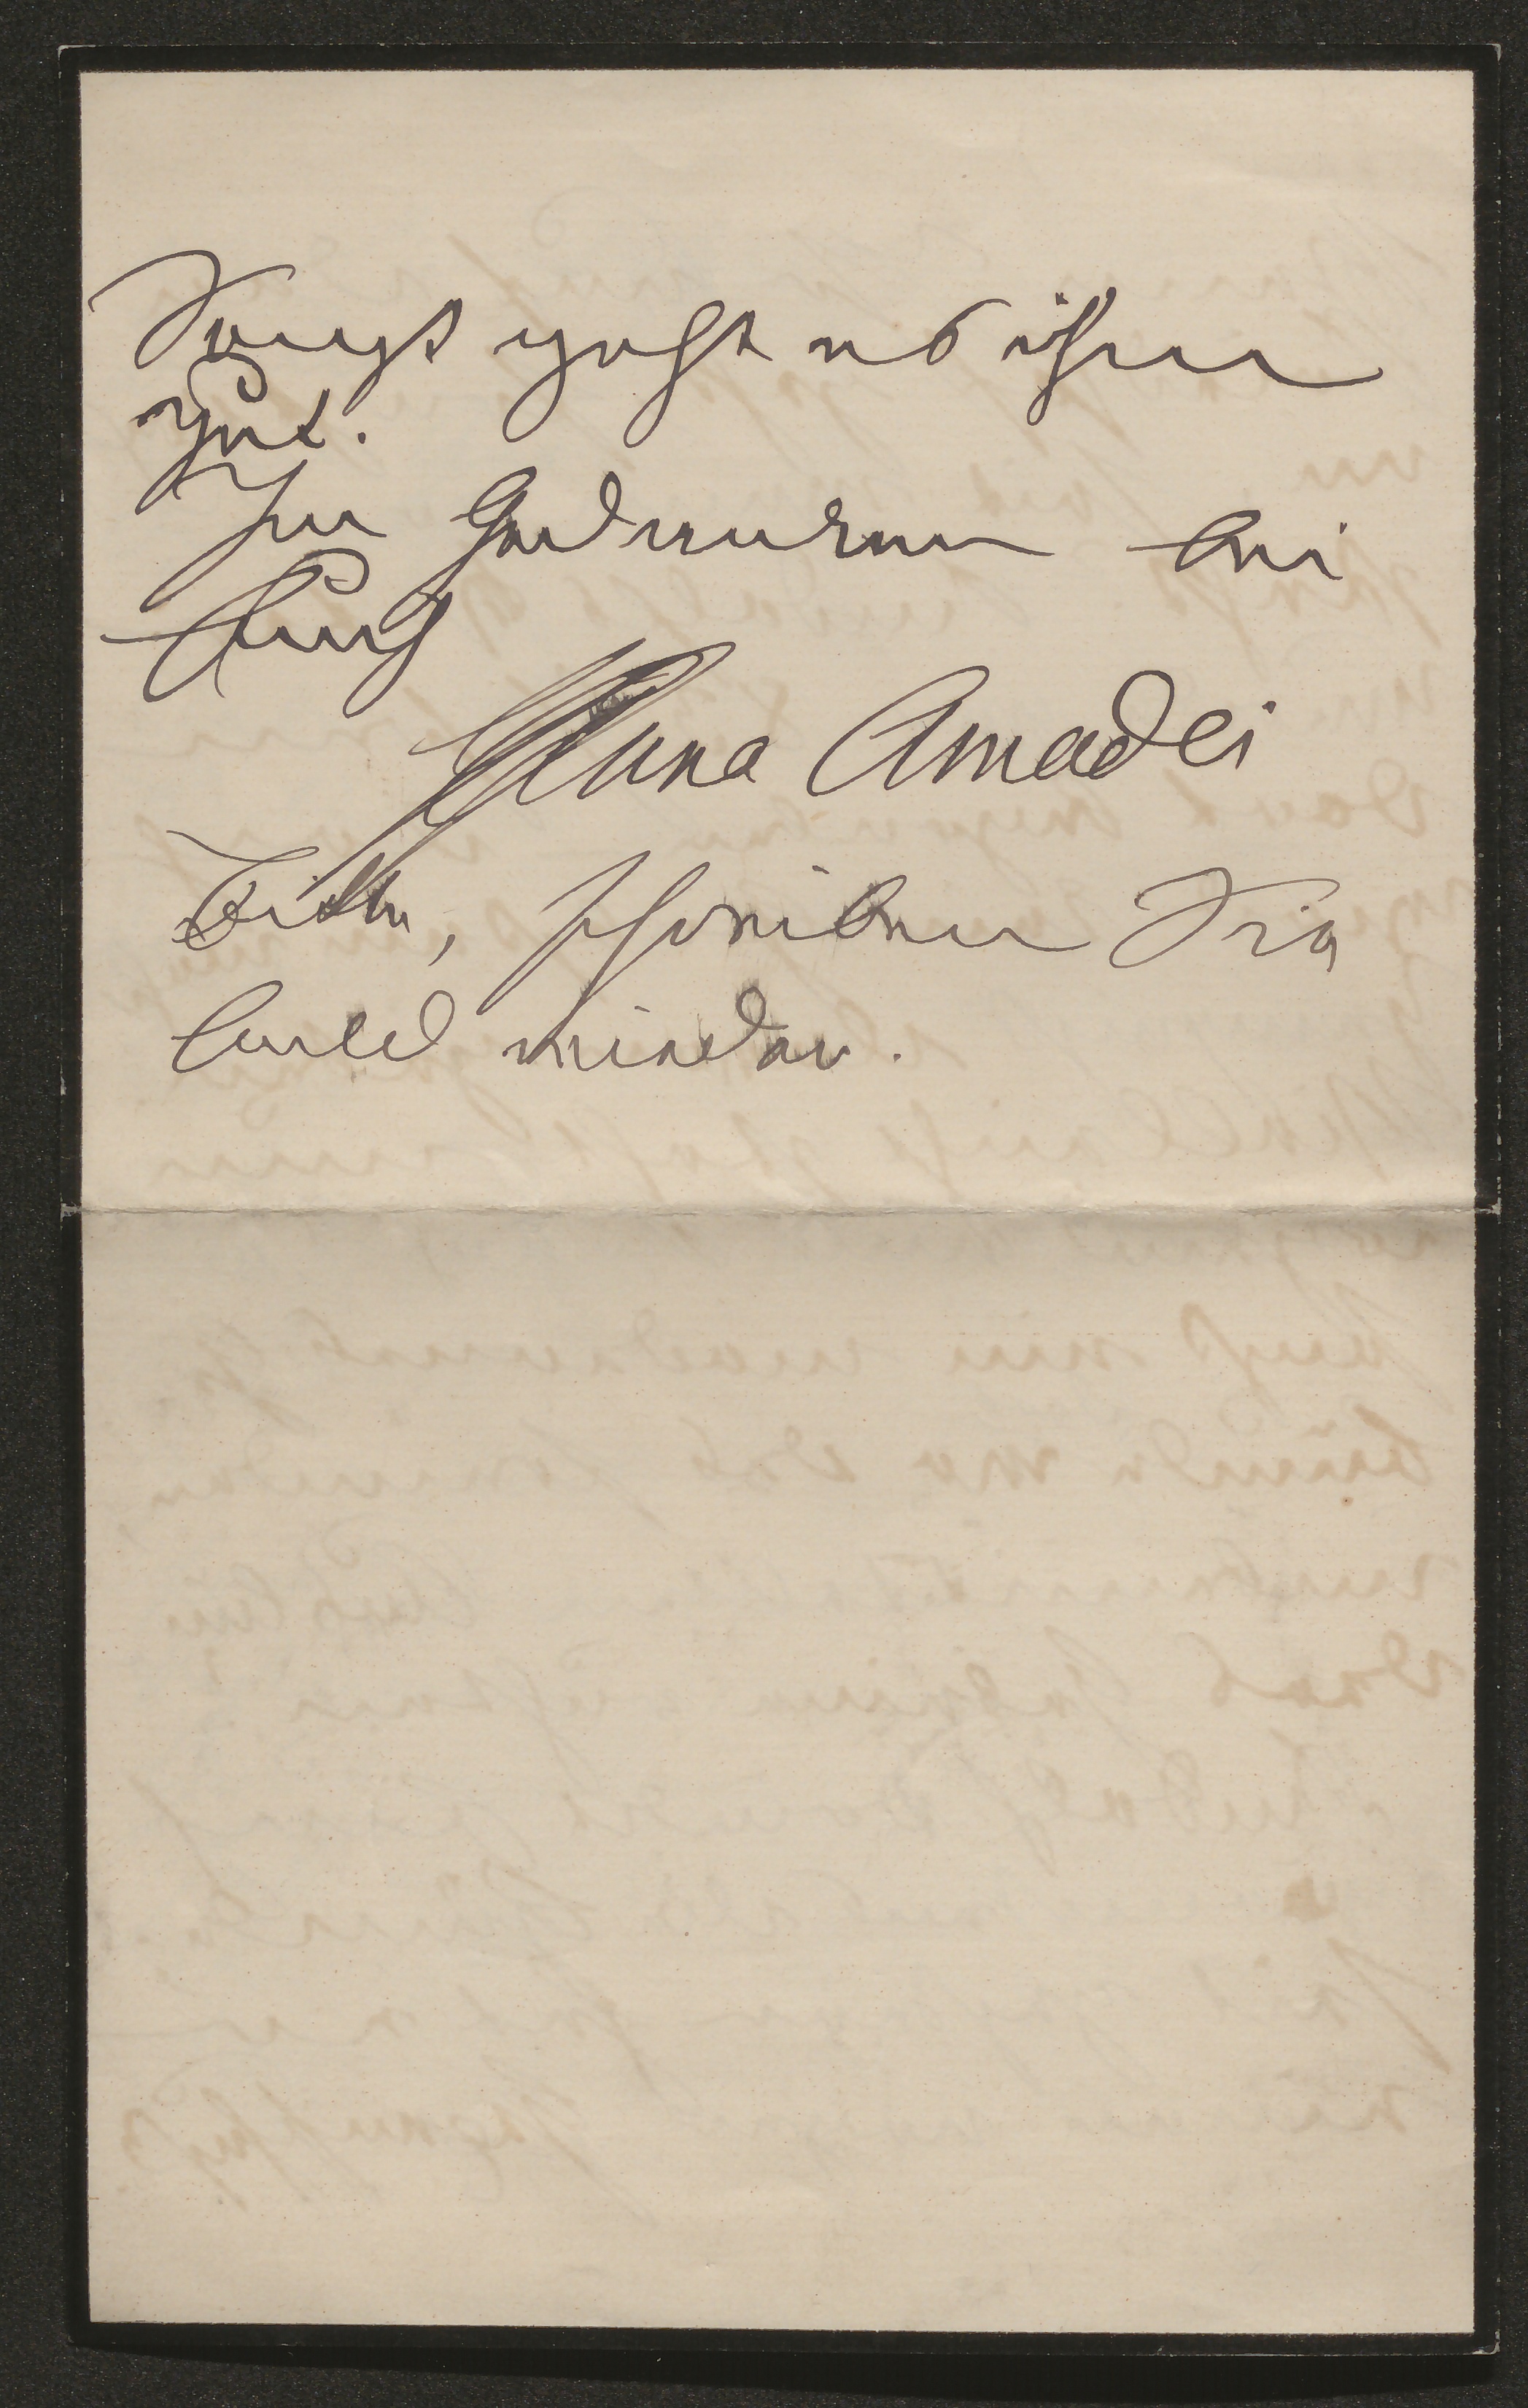 Sonst geht es ihm
gut.
In Gedanken bei
Euch
Anna Amadei
Bitte, schreiben Sie
bald wieder.